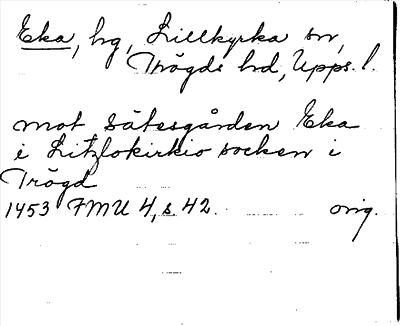 Eka, hg, Lillkyrka sn,
Trögds hd, Upps. l.
mot Sätesgården Eka
i Litzlokirkio socken i
Trögd
1453 FMU 4, s 42. orig.